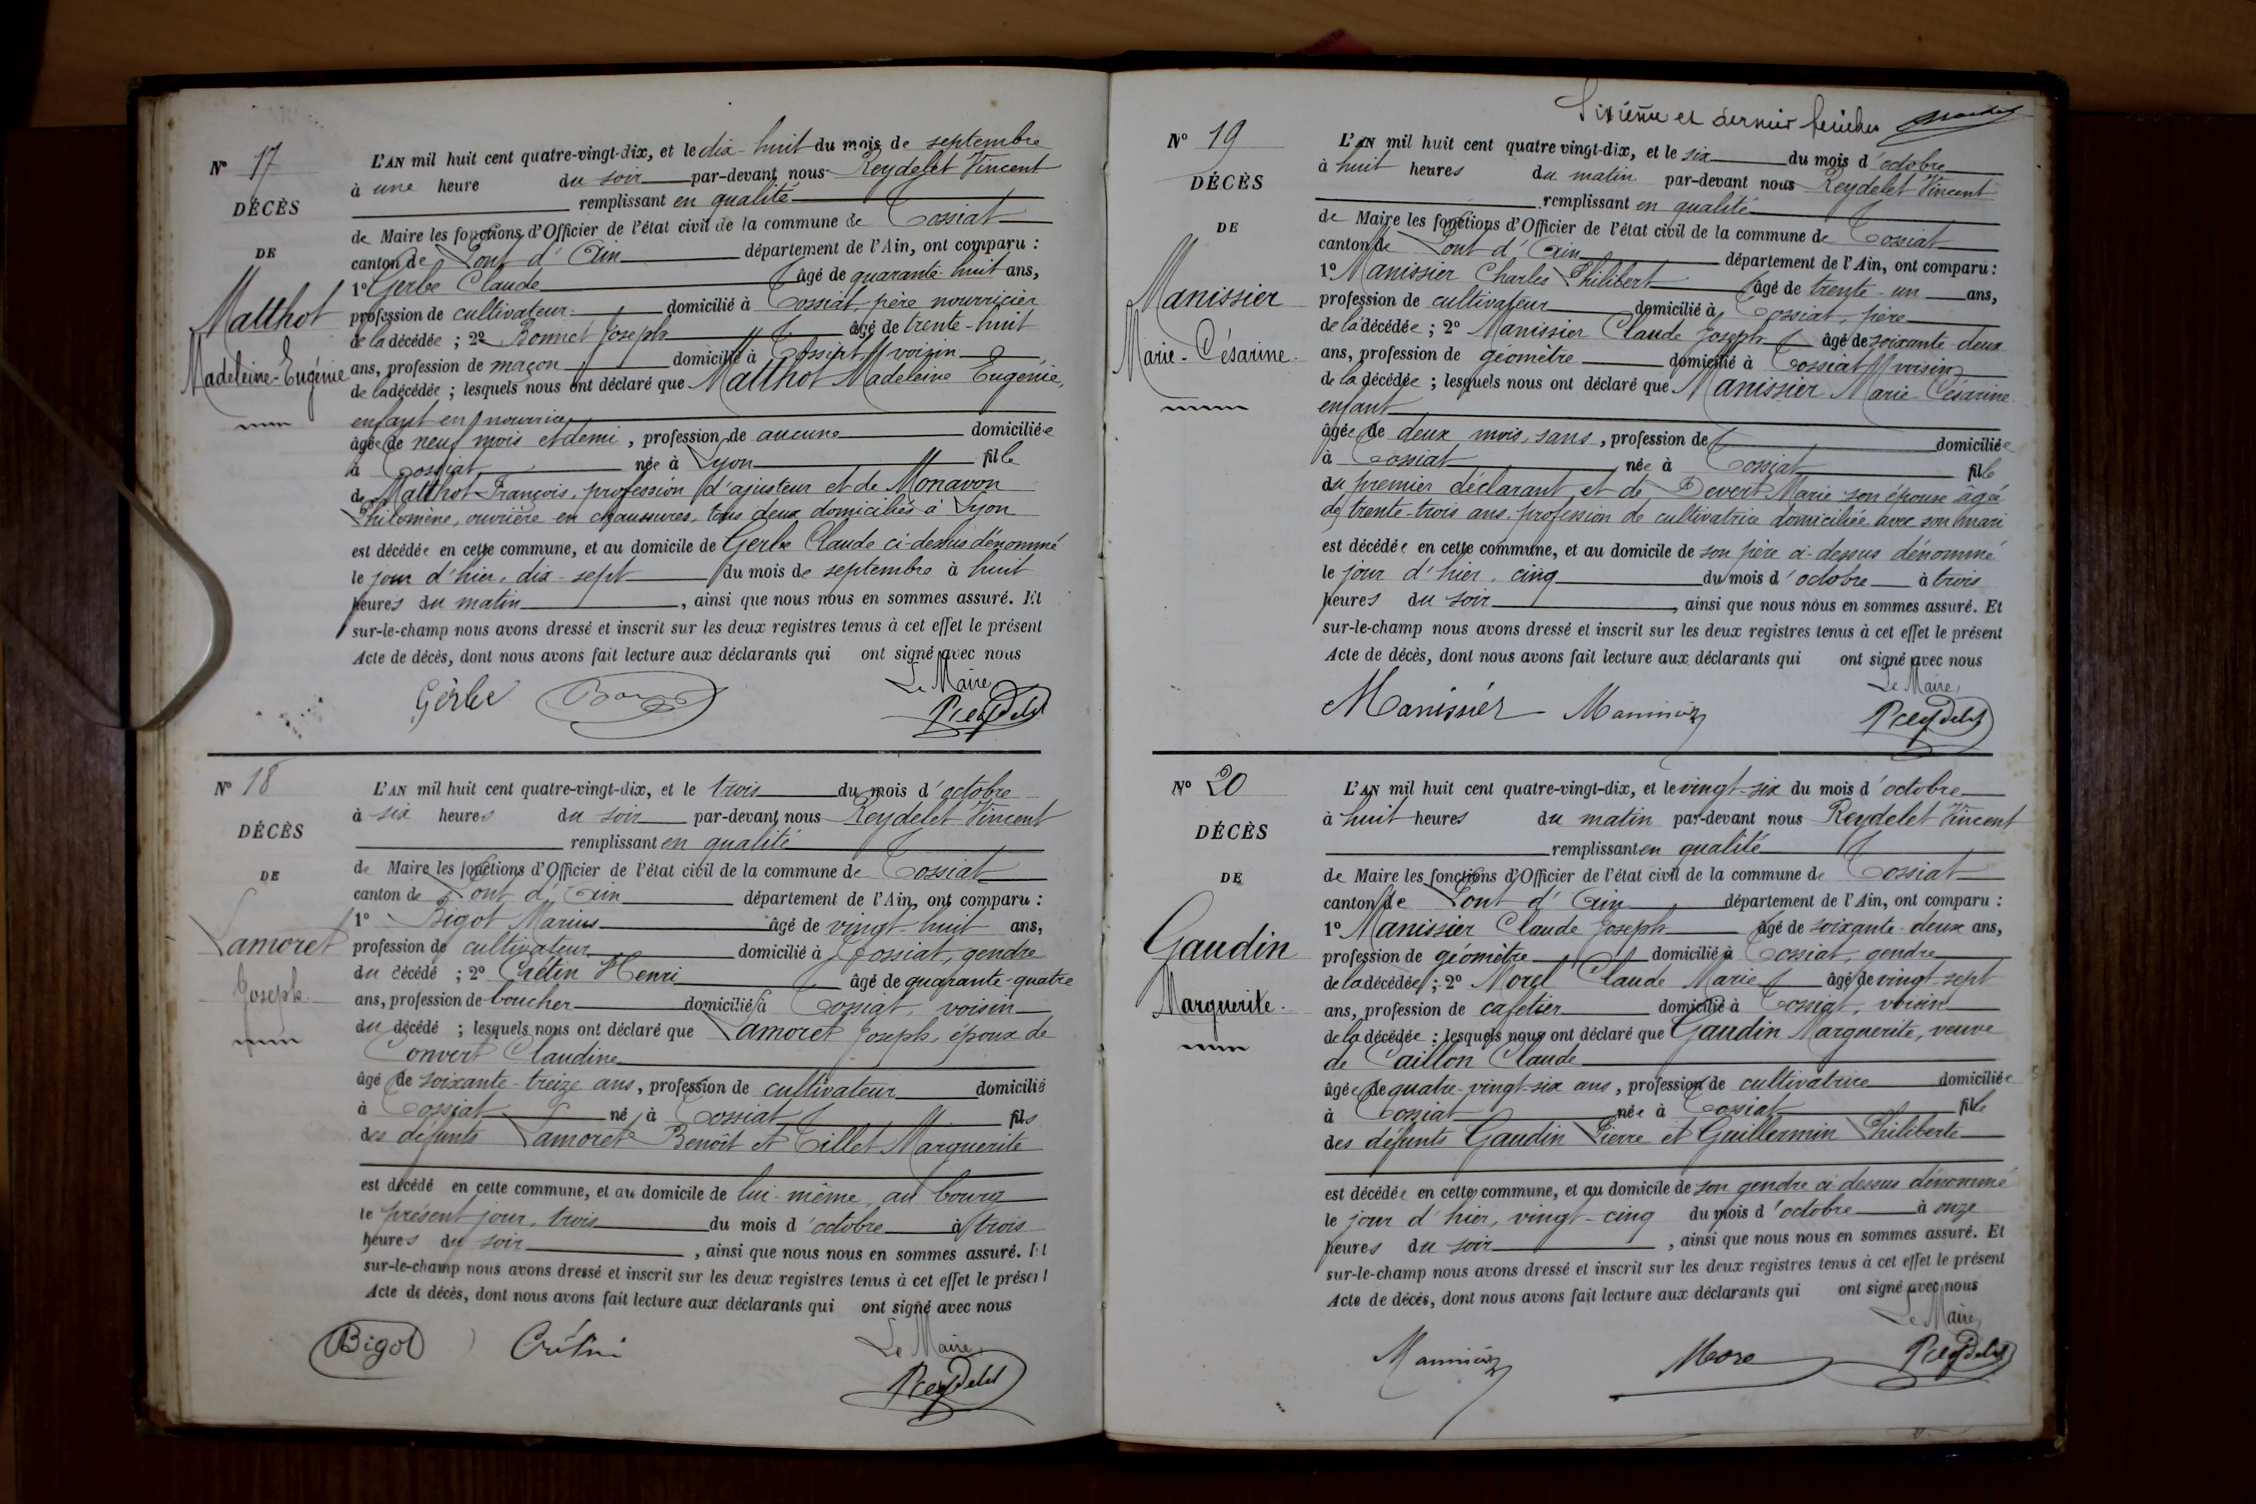 N° 17
DÉCÈS
DE
Matthot
Madeleine-Eugénie
L'AN mil huit cent quatre-vingt-dix, et le dix-huit du mois de septembre
à une heure du soir par-devant nous Reydelet Vincent
remplissant en qualité
de Maire les fonctions d'Officier de l'état civil de la commune de Tossiat
canton de Pont d'Ain département de l'Ain, ont comparu :
1° Gerbe Claude âgé de quarante-huit ans,
profession de cultivateur domicilié à Tossiat, père nourricier
de la décédée ; 2° Bonnet Joseph âgé de trente-huit
ans, profession de maçon domicilié à Tossiat, voisin
de la décédée ; lesquels nous ont déclaré que Matthot Madeleine Eugénie,
enfant en nourrice
âgée de neuf mois et demi, profession de aucune domiciliée
à Tossiat née à Lyon fille
de Matthot François, profession d'ajusteur et de Monavon
Philomène, ouvrière en chaussures, tous deux domiciliés à Lyon
est décédée en cette commune, et au domicile de Gerbe Claude ci-dessus dénommé
le jour d'hier, dix-sept du mois de septembre à huit
heures du matin, ainsi que nous nous en sommes assuré. Et
sur-le-champ nous avons dressé et inscrit sur les deux registres tenus à cet effet le présent
Acte de décès, dont nous avons fait lecture aux déclarants qui ont signé avec nous
Le Maire,
Gerbe Reydelet
N° 18
DÉCÈS
DE
Lamoret
Joseph
L'AN mil huit cent quatre-vingt-dix, et le trois du mois d'octobre
à six heures du soir par-devant nous Reydelet Vincent
remplissant en qualité
de Maire les fonctions d'Officier de l'état civil de la commune de Tossiat
canton de Pont d'Ain département de l'Ain, ont comparu :
1° Bigot Marius âgé de vingt-huit ans,
profession de cultivateur domicilié à Tossiat, gendre
du décédé ; 2° Crétin Henri âgé de quarante-quatre
ans, profession de boucher domicilié à Tossiat, voisin
du décédé ; lesquels nous ont déclaré que Lamoret Joseph, époux de
Convert Claudine
âgé de soixante-treize ans, profession de cultivateur domicilié
à Tossiat né à Tossiat fils
des défunts Lamoret Benoît et Tillet Marguerite
est décédé en cette commune, et au domicile de lui-même, au bourg
le présent jour, trois du mois d'octobre à trois
heures du soir, ainsi que nous nous en sommes assuré. Et
sur-le-champ nous avons dressé et inscrit sur les deux registres tenus à cet effet le présent
Acte de décès, dont nous avons fait lecture aux déclarants qui ont signé avec nous
Le Maire,
Bigot Crétin Reydelet
Sixième et dernier feuillet
N° 19
DÉCÈS
DE
Manissier
Marie-Césarine
L'AN mil huit cent quatre vingt-dix, et le six du mois d'octobre
à huit heures du matin par-devant nous Reydelet Vincent
remplissant en qualité
de Maire les fonctions d'Officier de l'état civil de la commune de Tossiat
canton de Pont d'Ain département de l'Ain, ont comparu :
1° Manissier Charles Philibert âgé de trente-un ans,
profession de cultivateur domicilié à Tossiat, père
de la décédée ; 2° Manissier Claude Joseph âgé de soixante-deux
ans, profession de géomètre domicilié à Tossiat voisin
de la décédée ; lesquels nous ont déclaré que Manissier Marie Césarine
enfant
âgée de deux mois, sans, profession de domiciliée
à Tossiat née à Tossiat fille
du premier déclarant et de Devert Marie son épouse âgée
de trente-trois ans, profession de cultivatrice domiciliée avec son mari
est décédée en cette commune, et au domicile de son père ci-dessus dénommé
le jour d'hier, cinq du mois d'octobre à trois
heures du soir, ainsi que nous nous en sommes assuré. Et
sur-le-champ nous avons dressé et inscrit sur les deux registres tenus à cet effet le présent
Acte de décès, dont nous avons fait lecture aux déclarants qui ont signé avec nous
Le Maire,
Manissier Manissier Reydelet
N° 20
DÉCÈS
DE
Gaudin
Marguerite
L'AN mil huit cent quatre-vingt-dix, et le vingt-six du mois d'octobre
à huit heures du matin par-devant nous Reydelet Vincent
remplissant en qualité
de Maire les fonctions d'Officier de l'état civil de la commune de Tossiat
canton de Pont d'Ain département de l'Ain, ont comparu :
1° Manissier Claude Joseph âgé de soixante-deux ans,
profession de géomètre domicilié à Tossiat, gendre
de la décédée ; 2° Morel Claude Marie âgé de vingt-sept
ans, profession de cafetier domicilié à Tossiat, voisin
de la décédée ; lesquels nous ont déclaré que Gaudin Marguerite, veuve
de Caillon Claude
âgée de quatre-vingt-six ans, profession de cultivatrice domiciliée
à Tossiat née à Tossiat fille
des défunts Gaudin Pierre et Guillermin Philiberte
est décédée en cette commune, et au domicile de son gendre ci-dessus dénommé
le jour d'hier, vingt-cinq du mois d'octobre à onze
heures du soir, ainsi que nous nous en sommes assuré. Et
sur-le-champ nous avons dressé et inscrit sur les deux registres tenus à cet effet le présent
Acte de décès, dont nous avons fait lecture aux déclarants qui ont signé avec nous
Le Maire,
Manissier More Reydelet